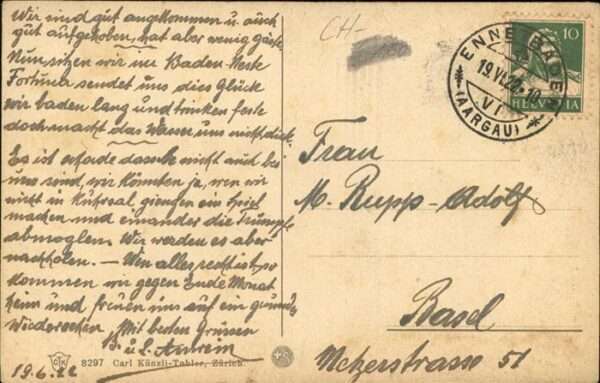 Wir sind gut angekommen u. auch
gut aufgehoben, hat aber wenig Gäste
Nun sitzen wir in Baden. Merk
Fortuna sendet uns dies Glück
wir baden lang und trinken feste
doch macht das Wasser uns nicht dick.
Es ist schade dass Sie nicht auch bei
uns sind, wir könnten ja, wen wir
nicht in Kursaal giengen ein Spiel
machen und einander die Trümpfe
abmoglen. Wir werden es aber
nachholen. — Wen alles recht ist, so
kommen wir gegen Ende Monat
heim und freuen uns auf ein
Wiedersehen. Mit besten Grüssen
B. u. L. Amrein
19.6.22
CH-
10
HELVETIA
ENNETBADEN
19.VI.22.-10
VI
(AARGAU)
Frau
M. Rupp-Adolf
Basel
Metzerstrasse 51
CK
8297 Carl Künzli-Tobler, Zürich.